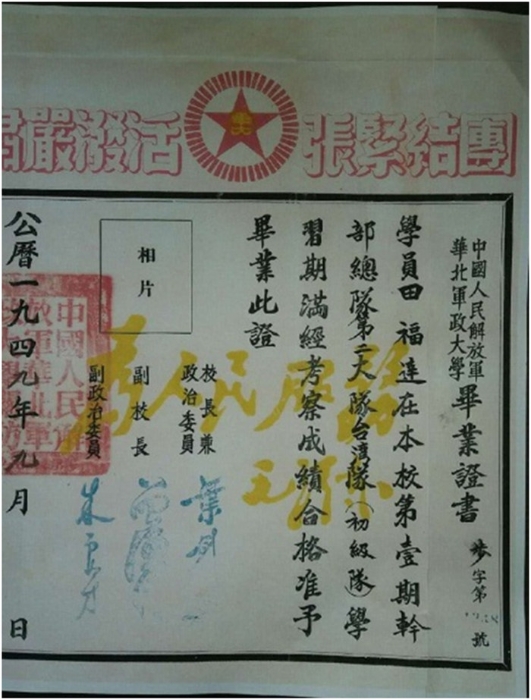 團結緊張
活潑嚴肅
中國人民解放軍
華北軍政大學
畢業證書
步字第 號
學員田福達在本校第壹期幹
部總隊第二大隊台灣隊(初級隊)學
習期滿經考察成績合格准予
畢業此證
為人民服務
相片
校長兼
政治委員
副校長
副政治委員
朱良才
公曆一九四九年九月 日
中國人民解